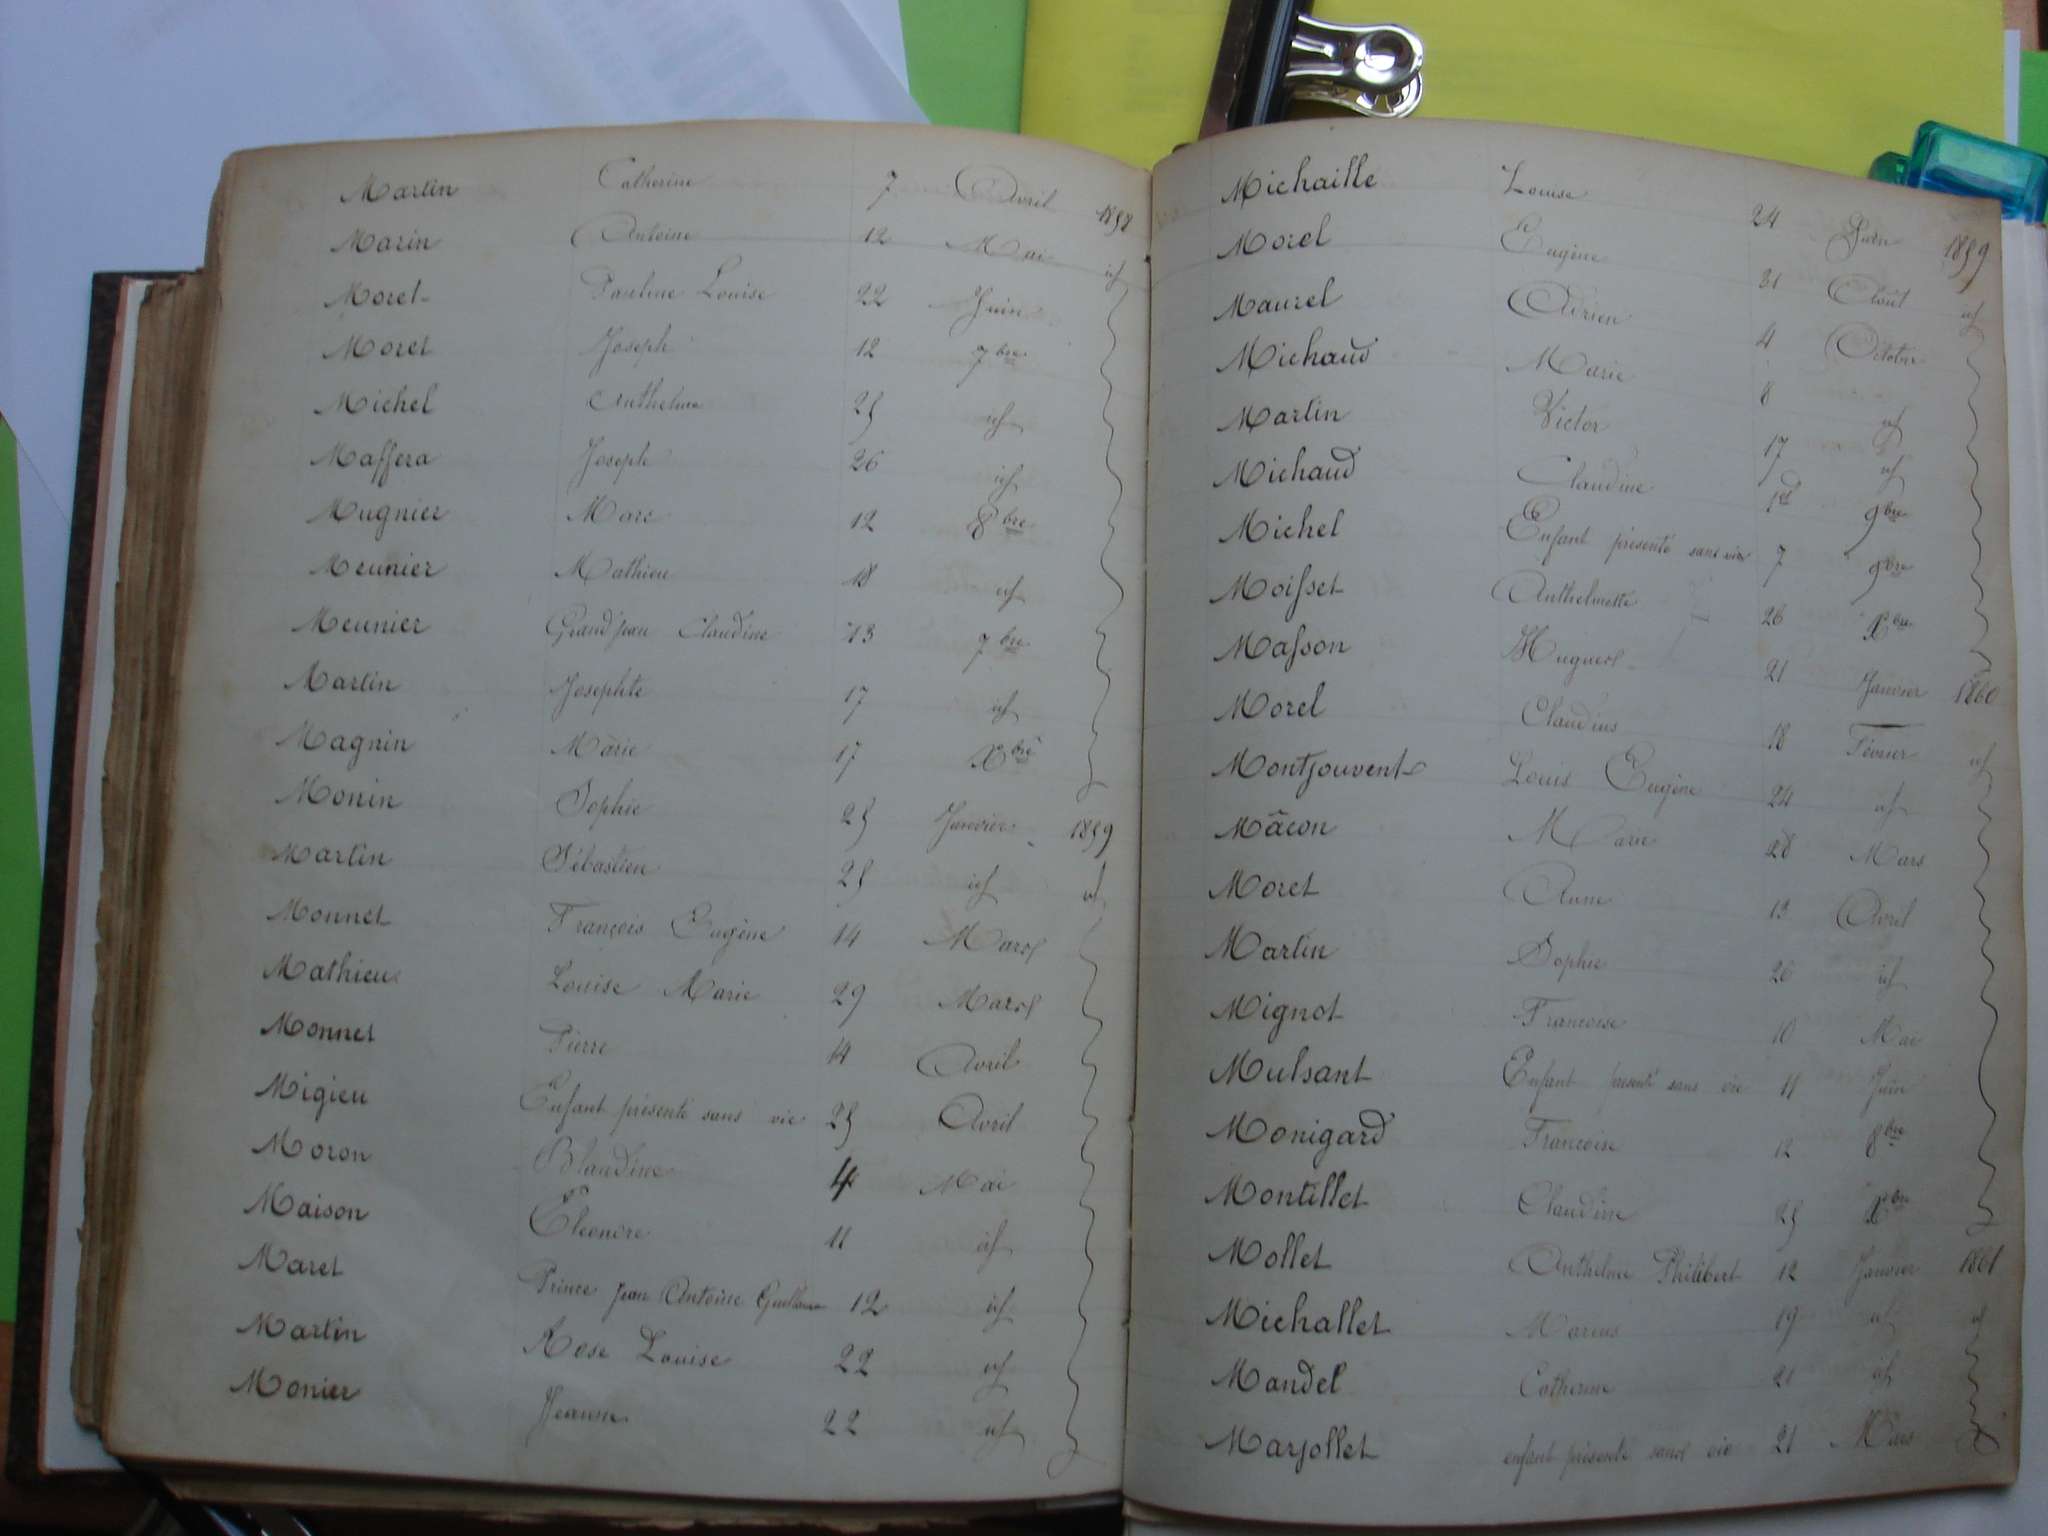 Martin Catherine 7 Avril 1858
Marin Antoine 12 Mai id
Moret Pauline Louise 22 Juin
Moret Joseph 12 7bre
Michel Anthelme 25 id
Maffera Joseph 26 id
Mugnier Marc 12 8bre
Meunier Mathieu 18 id
Meunier Grandjean Claudine 13 7bre
Martin Josephte 17 id
Magnin Marie 17 Xbre
Monin Sophie 25 Janvier 1859
Martin Sébastien 25 id id
Monnet François Eugène 14 Mars
Mathieu Louise Marie 29 Mars
Monnet Pierre 14 Avril
Migieu Enfant présenté sans vie 25 Avril
Moron Blandine 4 Mai
Maison Eléonore 11 id
Maret Prince Jean Antoine Guillaume 12 id
Martin Rose Louise 22 id
Monier Jeanne 22 id
Michaille Louise 24 Juin 1859
Morel Eugène 31 Août id
Maurel Adrien 4 Octobre
Michaud Marie 8 id
Martin Victor 17 id
Michaud Claudine 1er 9bre
Michel Enfant présenté sans vie 7 9bre
Moisset Anthelmette 26 Xbre
Masson 21 Janvier 1860
Morel Claudius 18 Février id
Montjouvent Louis Eugène 24 id
Mâcon Marie 28 Mars
Moret Anne 13 Avril
Martin Sophie 26 id
Mignot Francoise 10 Mai
Mulsant Enfant présenté sans vie 11 Juin
Monigard Francoise 12 8bre
Montillet Claudine 25 Xbre
Mollet Anthelme Philibert 12 Janvier 1861
Michallet Marius 19 id id
Mandel Catherine 21 id
Marjollet enfant présenté sans vie 21 Mars